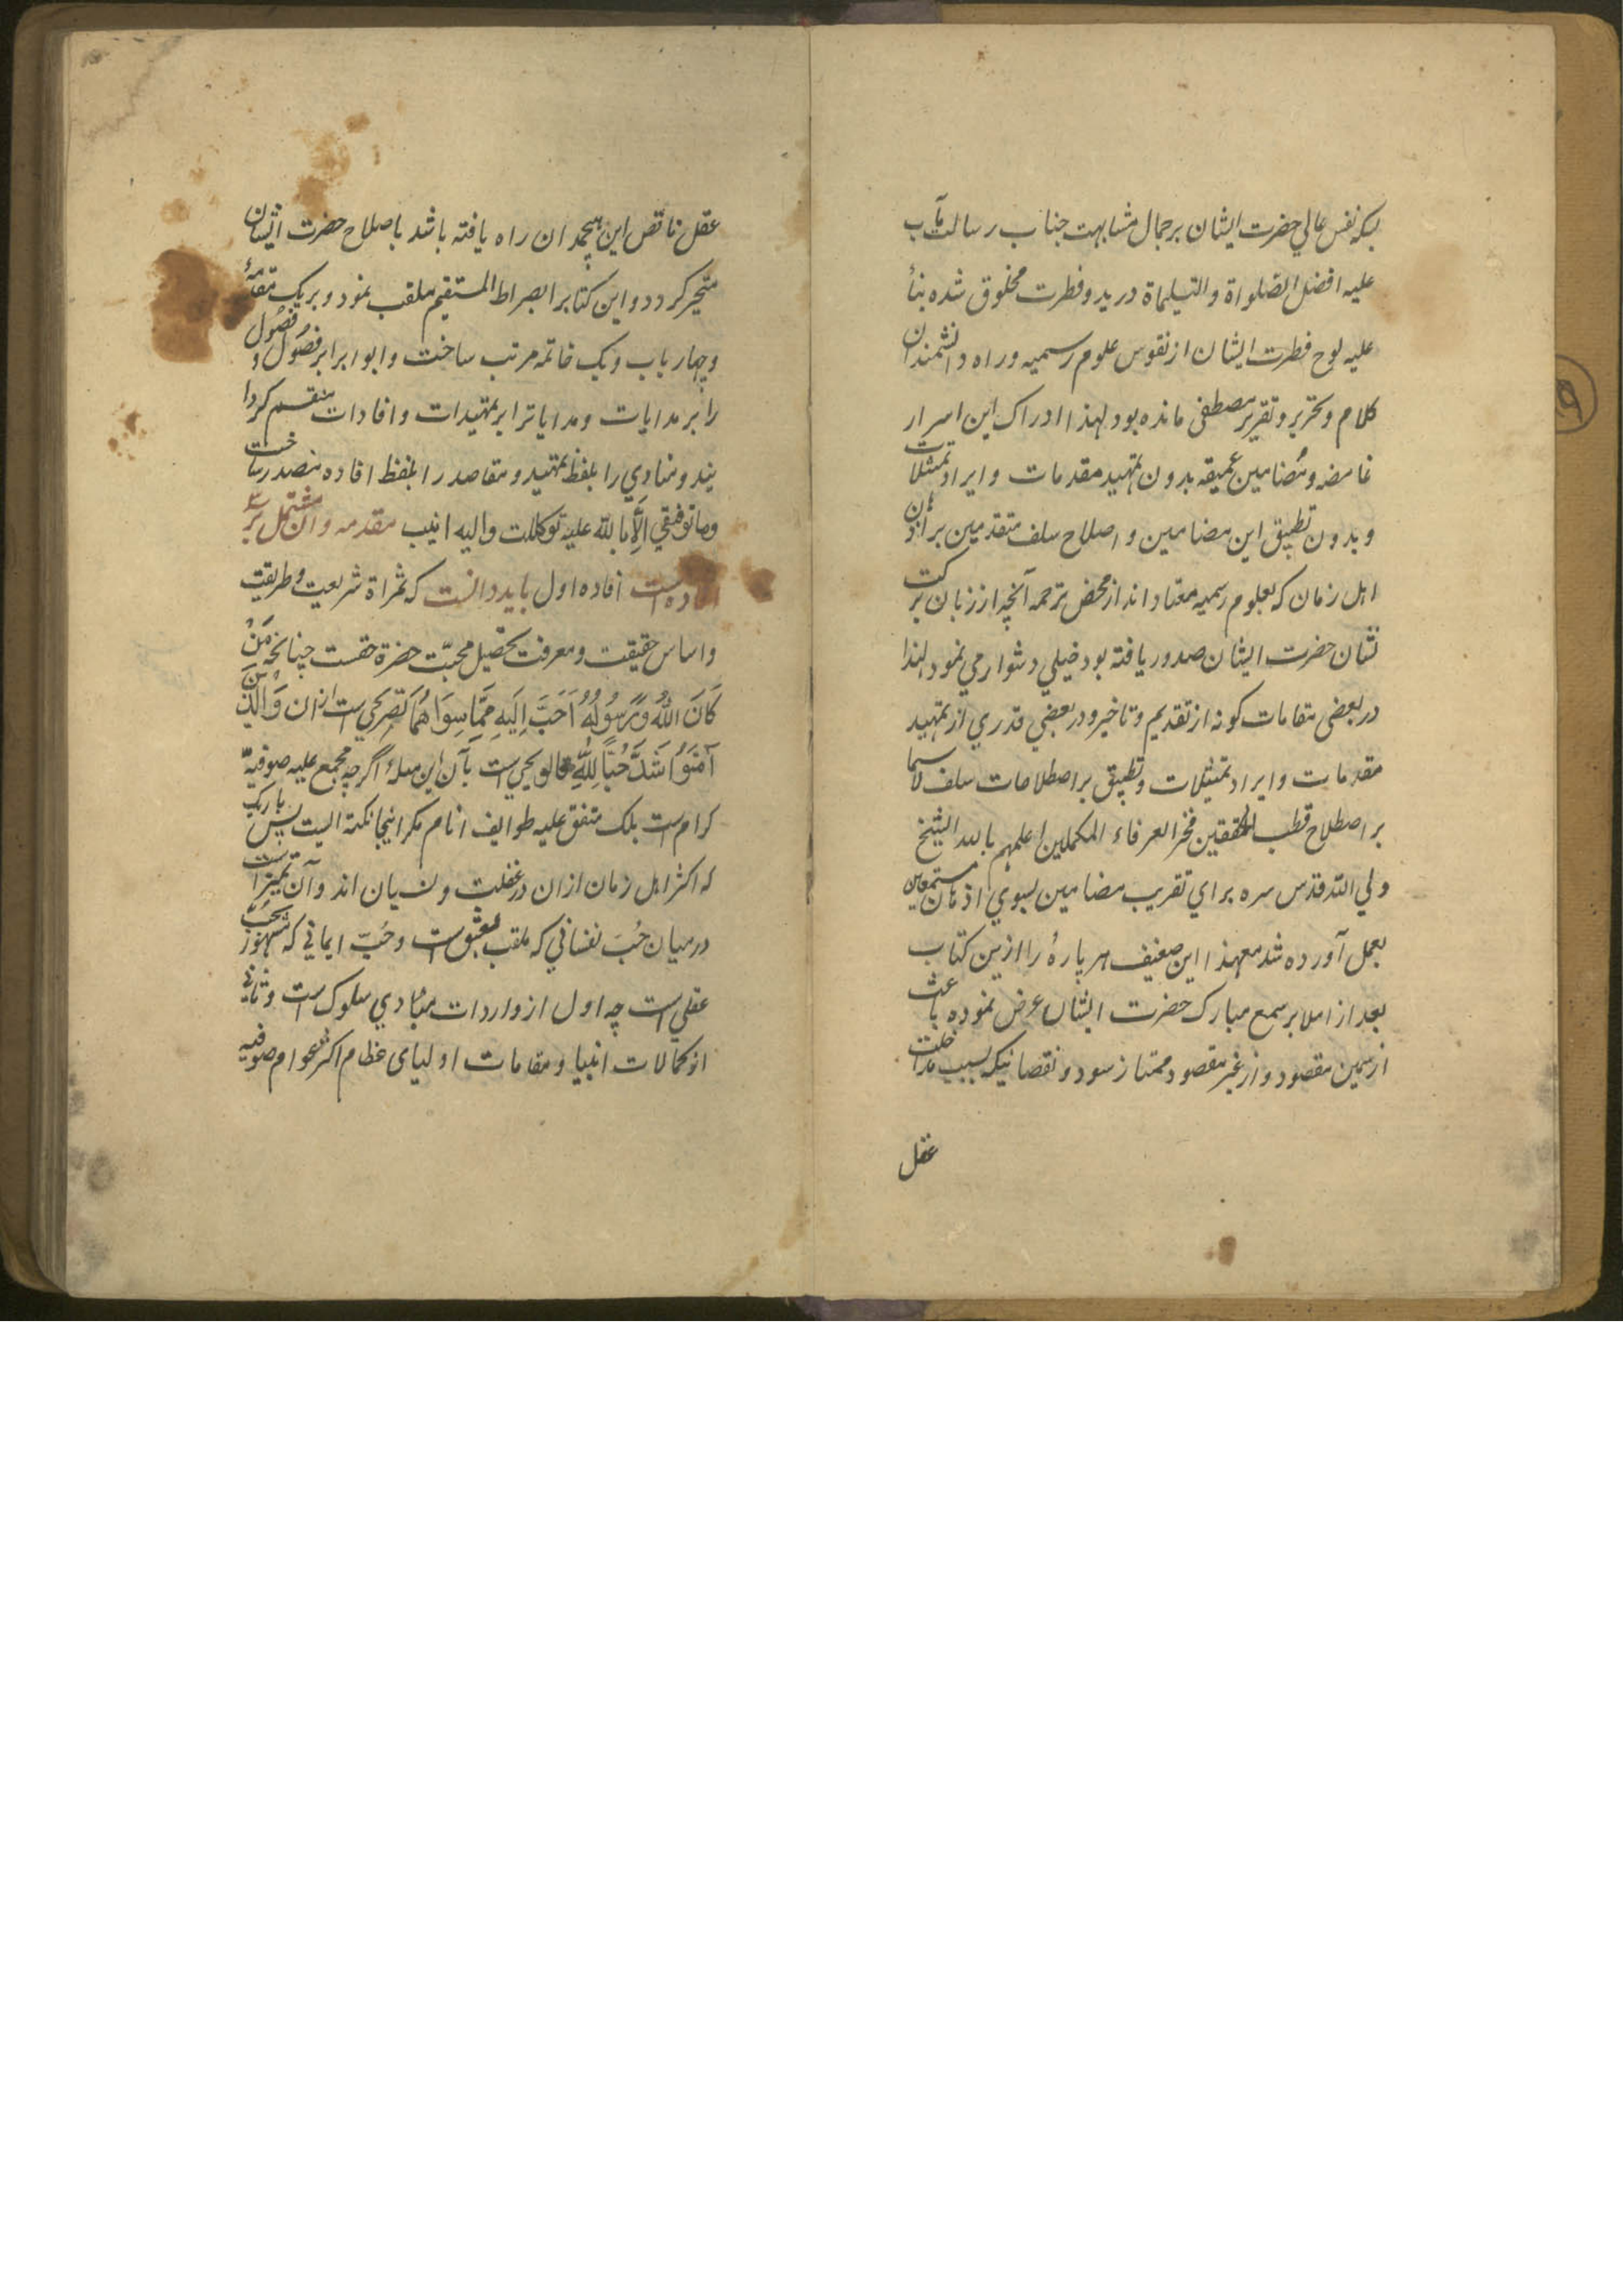 بسکه نفس عالي حضرت ایشان بر جمال مشابهت جناب رسالت مآب
علیه افضل الصلواة والتسلیماة در بدو فطرت مخلوق شده بناءً
علیه لوح فطرت ایشان از نقوس علوم رسمیه وراه دانشمندان
کلام و تحریر و تقریر مصطفی مانده بود لهذا ادراک این اسرار
غامضه و مضامین عمیقه بدون تمهید مقدمات و ایراد تمثیلات
و بدون تطبیق این مضامین و اصلاح سلف متقدمین بر اذهان
اهل زمان که بعلوم رسمیه معتاد اند از محض ترجمه آنچه از زبان برکت
نشان حضرت ایشان صدور یافته بود خیلي دشوار مي نمود لهذا
در بعضی مقامات کونه از تقدیم و تاخیر و در بعضي قدري از تمهید
مقدمات و ایراد تمثیلات و تطبیق بر اصطلاحات سلف لاسیما
بر اصطلاح قطب المحققین فخر العرفاء المکملین اعلمهم بالله الشیخ
ولي الله قدس سره براي تقریب مضامین بسوي اذهان مستمعین
بعمل آورده شد معهذا این ضعیف هر پارهٔ را ازین کتاب
بعد از املا بر سمع مبارک حضرت ایشان عرض نموده باعث
از سمین مقصود و از غیر مقصود ممتاز سود و نقصانیکه بسبب مداخلت
عقل
عقل ناقص این هیچمدان راه یافته باشد باصلاح حضرت ایشان
متحیر کردد و این کتابرا بصراط المستقیم ملقب نمود و بر یک مقدمهٔ
و چهار باب و یک خاتمه مرتب ساخت و ابوابرا بر فصول و فصول
را بر هدایات و هدایاترا بر تمهیدات و افادات منقسم کردا
نید و مبادي را بلفظ تمهید و مقاصد را بلفظ افاده مصدر ساخت
وما توفیقي الّا بالله علیه توکلت والیه انیب مقدمه و آن مشتمل بر سه
افاده است افاده اول باید دانست که ثمراة شریعت و طریقت
و اساس حقیقت و معرفت تحصیل محبّت حضرة حقست چنانچه مَنْ
کَانَ اللهُ وَرَسُولُهُ اَحَبَّ اِلَیهِ مِمَّا سِوَاهُمَا تصریحي است ازان وَالَّذِینَ
آمَنُوا اَشَدَّ حُبًّا لِلّٰهِ تلویحي است بآن این مسله اگرچه مجمع علیه صوفیهٔ
کرام است بلک متفق علیه طوایف انام مکر اینجا نکته ایست بس باریک
که اکثر اهل زمان ازان در غفلت و نسیان اند و آن تمییز است
درمیان حُبّ نفساني که ملقب بعشق است و حُبّ ایماني که مشهور بحُبّ
عقلي است چه اول از واردات مبادي سلوک است و ثاني
از کمالات انبیا و مقامات اولیای عظام اکثر عوام صوفیه